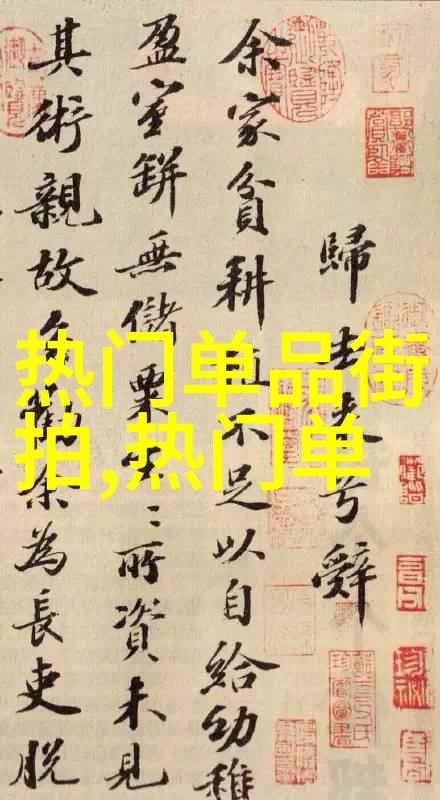 热门单品街
拍,热门单
歸去來兮辭
余家貧耕植不足以自給幼稚
盈室缾無儲粟生〻所資未見
其術親故多勸余為長吏脫